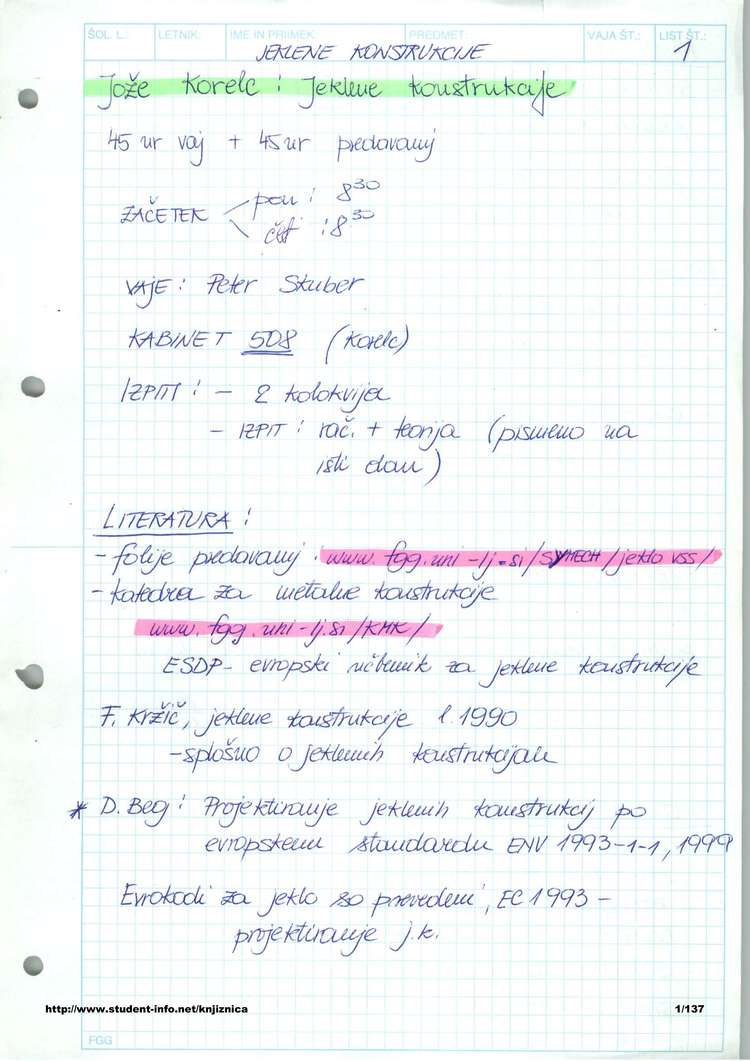 ŠOL. L.: LETNIK: IME IN PRIIMEK: PREDMET: VAJA ŠT.: LIST ŠT.:
JEKLENE KONSTRUKCIJE 1
Jože Korelc : Jeklene konstrukcije
45 ur vaj + 45 ur predavanj
ZAČETEK pon : 8³⁰
čet : 8³⁰
VAJE : Peter Skuber
KABINET 508 (Korelc)
IZPITI : - 2 kolokvija
- IZPIT : rač. + teorija (pismeno na
isti dan)
LITERATURA :
- folije predavanj : www.fgg.uni-lj.si/SYMECH/jeklo VSS/
- katedra za metalne konstrukcije
www.fgg.uni-lj.si/KMK/
ESDP - evropski učbenik za jeklene konstrukcije
F. Kržič, jeklene konstrukcije l. 1990
- splošno o jeklenih konstrukcijah
* D. Beg : Projektiranje jeklenih konstrukcij po
evropskem standardu ENV 1993-1-1, 1999
Evrokodi za jeklo so prevedeni, EC 1993 -
projektiranje j.k.
http://www.student-info.net/knjiznica 1/137
FGG